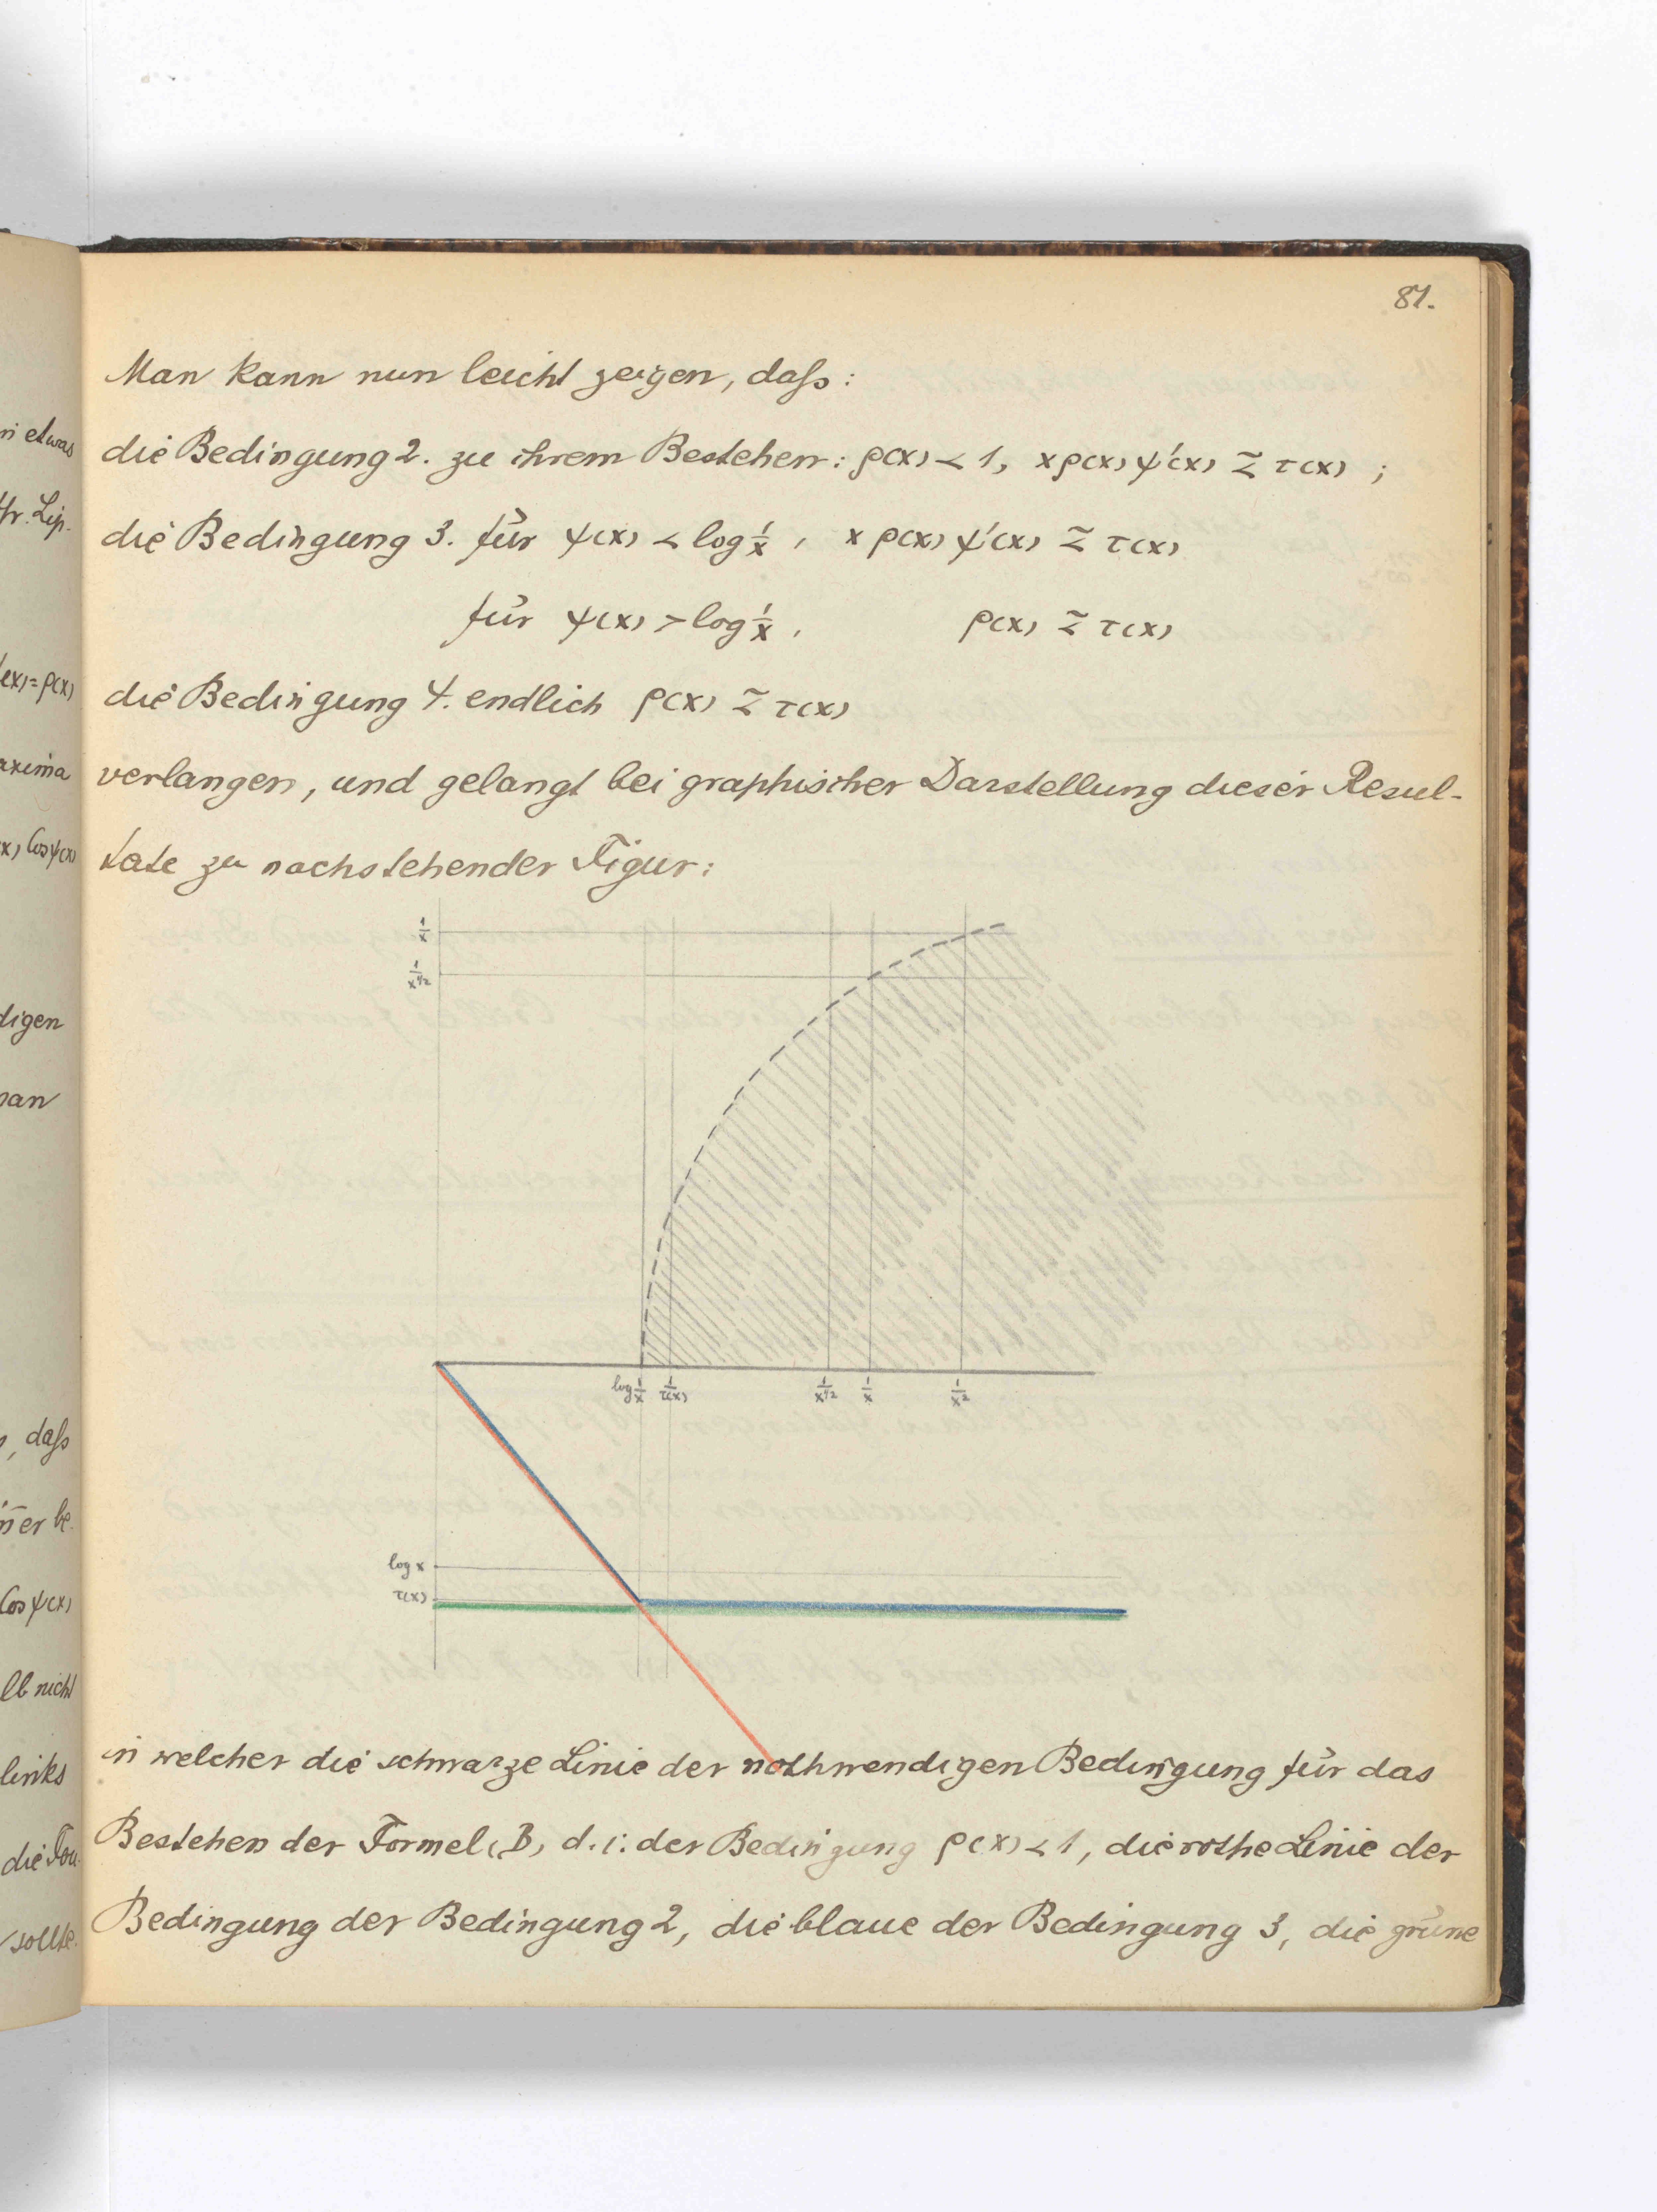 81.
Man kann nun leicht zeigen, daß:
die Bedingung 2. zu ihrem Bestehen: ρ(x) < 1, xρ(x)ψ'(x) ≾ τ(x) ;
die Bedingung 3. für ψ(x) < log 1/x , xρ(x)ψ'(x) ≾ τ(x)
für ψ(x) > log 1/x , ρ(x) ≾ τ(x)
die Bedingung 4. endlich ρ(x) ≾ τ(x)
verlangen, und gelangt bei graphischer Darstellung dieser Resul-
tate zu nachstehender Figur:
1/x
1/x^1/2
log 1/x 1/τ(x) 1/x^1/2 1/x 1/x^2
log x
τ(x)
in welcher die schwarze Linie der nothwendigen Bedingung für das
Bestehen der Formel (B) d. i. der Bedingung ρ(x) < 1, die rothe Linie der
Bedingung der Bedingung 2, die blaue der Bedingung 3, die grüne
etwas
Lip.
(x) = ρ(x)
axima
(x) Cos ψ(x)
digen
man
, daß
er be-
Cos ψ(x)
lb nicht
links
die Fou-
sollte.